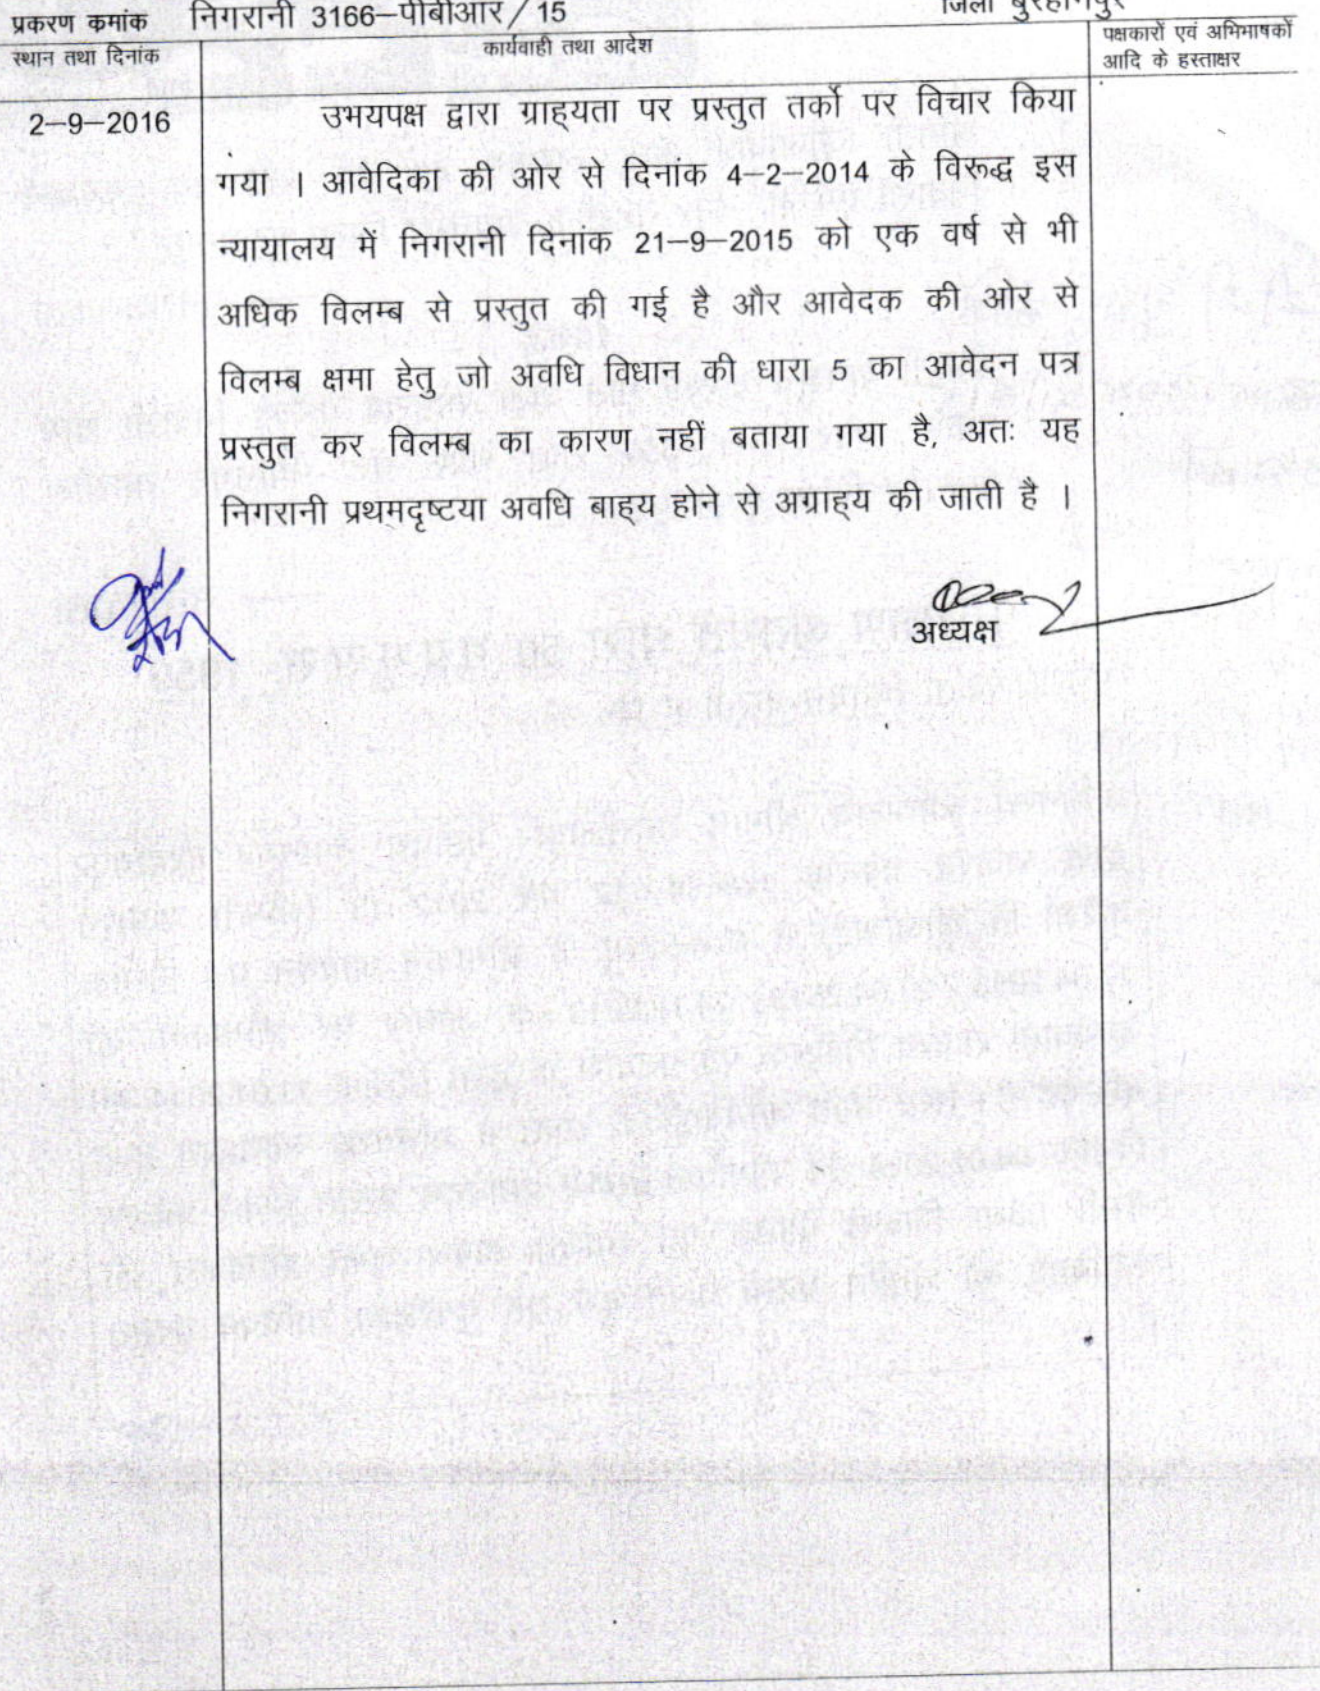 प्रकरण कमांक निगरानी 3166–पीबीआर/15 जिला बुरहानपुर
स्थान तथा दिनांक कार्यवाही तथा आदेश पक्षकारों एवं अभिभाषकों
आदि के हस्ताक्षर
2–9–2016 उभयपक्ष द्वारा ग्राह्यता पर प्रस्तुत तर्को पर विचार किया
गया । आवेदिका की ओर से दिनांक 4–2–2014 के विरूद्ध इस
न्यायालय में निगरानी दिनांक 21–9–2015 को एक वर्ष से भी
अधिक विलम्ब से प्रस्तुत की गई है और आवेदक की ओर से
विलम्ब क्षमा हेतु जो अवधि विधान की धारा 5 का आवेदन पत्र
प्रस्तुत कर विलम्ब का कारण नहीं बताया गया है, अतः यह
निगरानी प्रथमदृष्टया अवधि बाह्य होने से अग्राह्य की जाती है ।
अध्यक्ष